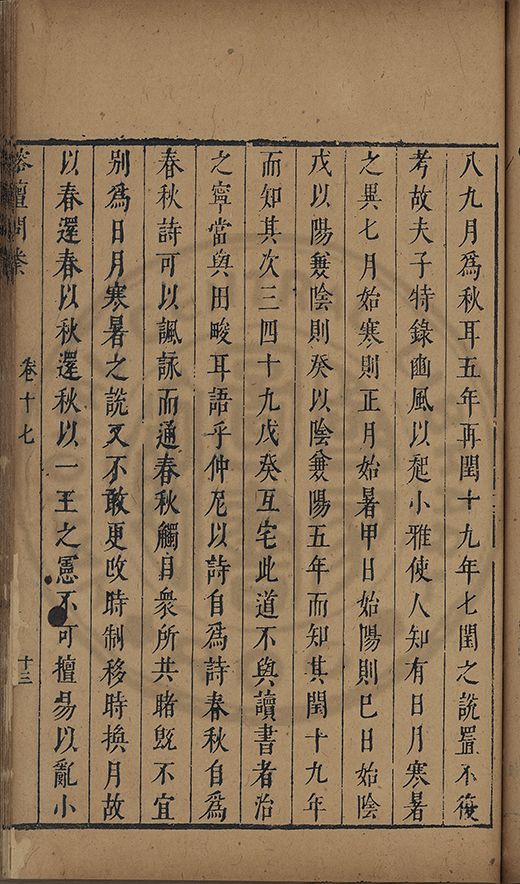 八九月爲秋耳五年再閏十九年七閏之說置不復
考故夫子特錄豳風以起小雅使人知有日月寒暑
之異七月始寒則正月始暑甲日始陽則巳日始陰
戊以陽兼陰則癸以陰兼陽五年而知其閏十九年
而知其次三四十九戊癸互宅此道不與讀書者治
之寧當與田畯耳語乎仲尼以詩自爲詩春秋自爲
春秋詩可以諷詠而通春秋觸目衆所共睹旣不宜
別爲日月寒暑之說又不敢更改時制移時換月故
以春還春以秋還秋以一王之憲不可擅易以亂小
榕壇問業
卷十七
十三